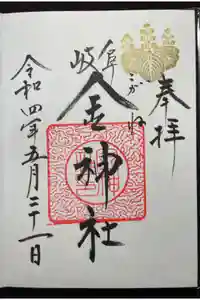 奉拝
岐阜
こがね
金神社
令和四年五月二十一日